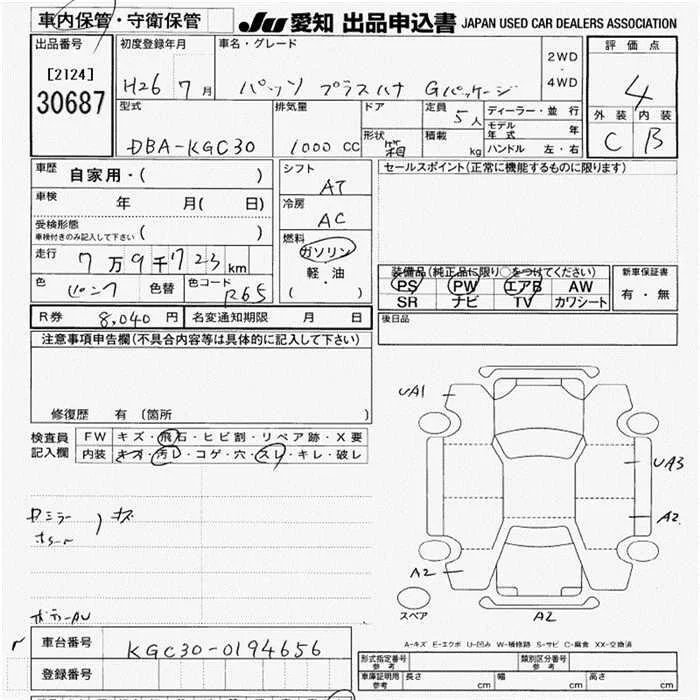 車内保管・守衛保管 JU 愛知 出品申込書 JAPAN USED CAR DEALERS ASSOCIATION
出品番号 初度登録年月 車名・グレード 2WD・4WD 評価点
[2124] 30687 H26 7月 パッソ プラスハナ Gパッケージ 4
外装 内装
C B
型式 排気量 ドア 定員 5人 ディーラー・並行
DBA-KGC30 1000 CC 形状 箱 積載 kg モデル年式 年
ハンドル 左・右
車歴 自家用・( ) シフト AT セールスポイント(正常に機能するものに限ります)
車検 年 月( 日) 冷房 AC
受検形態 車検付きのみ記入して下さい ( )
燃料 ガソリン 軽・油 ( )
走行 7万9千723km
色 ピンク 色替 色コード R65
装備品(純正品に限り○をつけてください) 新車保証書
PS PW エアB AW 有・無
SR ナビ TV カワシート
R券 8,040円 名変通知期限 月 日 後日品
注意事項申告欄(不具合内容等は具体的に記入して下さい)
修復歴 有(箇所 )
検査員記入欄 FW キズ・飛石・ヒビ割・リペア跡・X要
内装 キズ・汚レ・コゲ・穴・スレ・キレ・破レ
UA1
UA3
A2
A2
A2
スペア
キズ
A-キズ E-エクボ U-凹み W-補修跡 S-サビ C-腐食 XX-交換済
車台番号 KGC30-0194656
登録番号
形式指定番号 参考 類別区分番号 参考
車庫証明用 参考 長さ cm 幅 cm 高さ cm